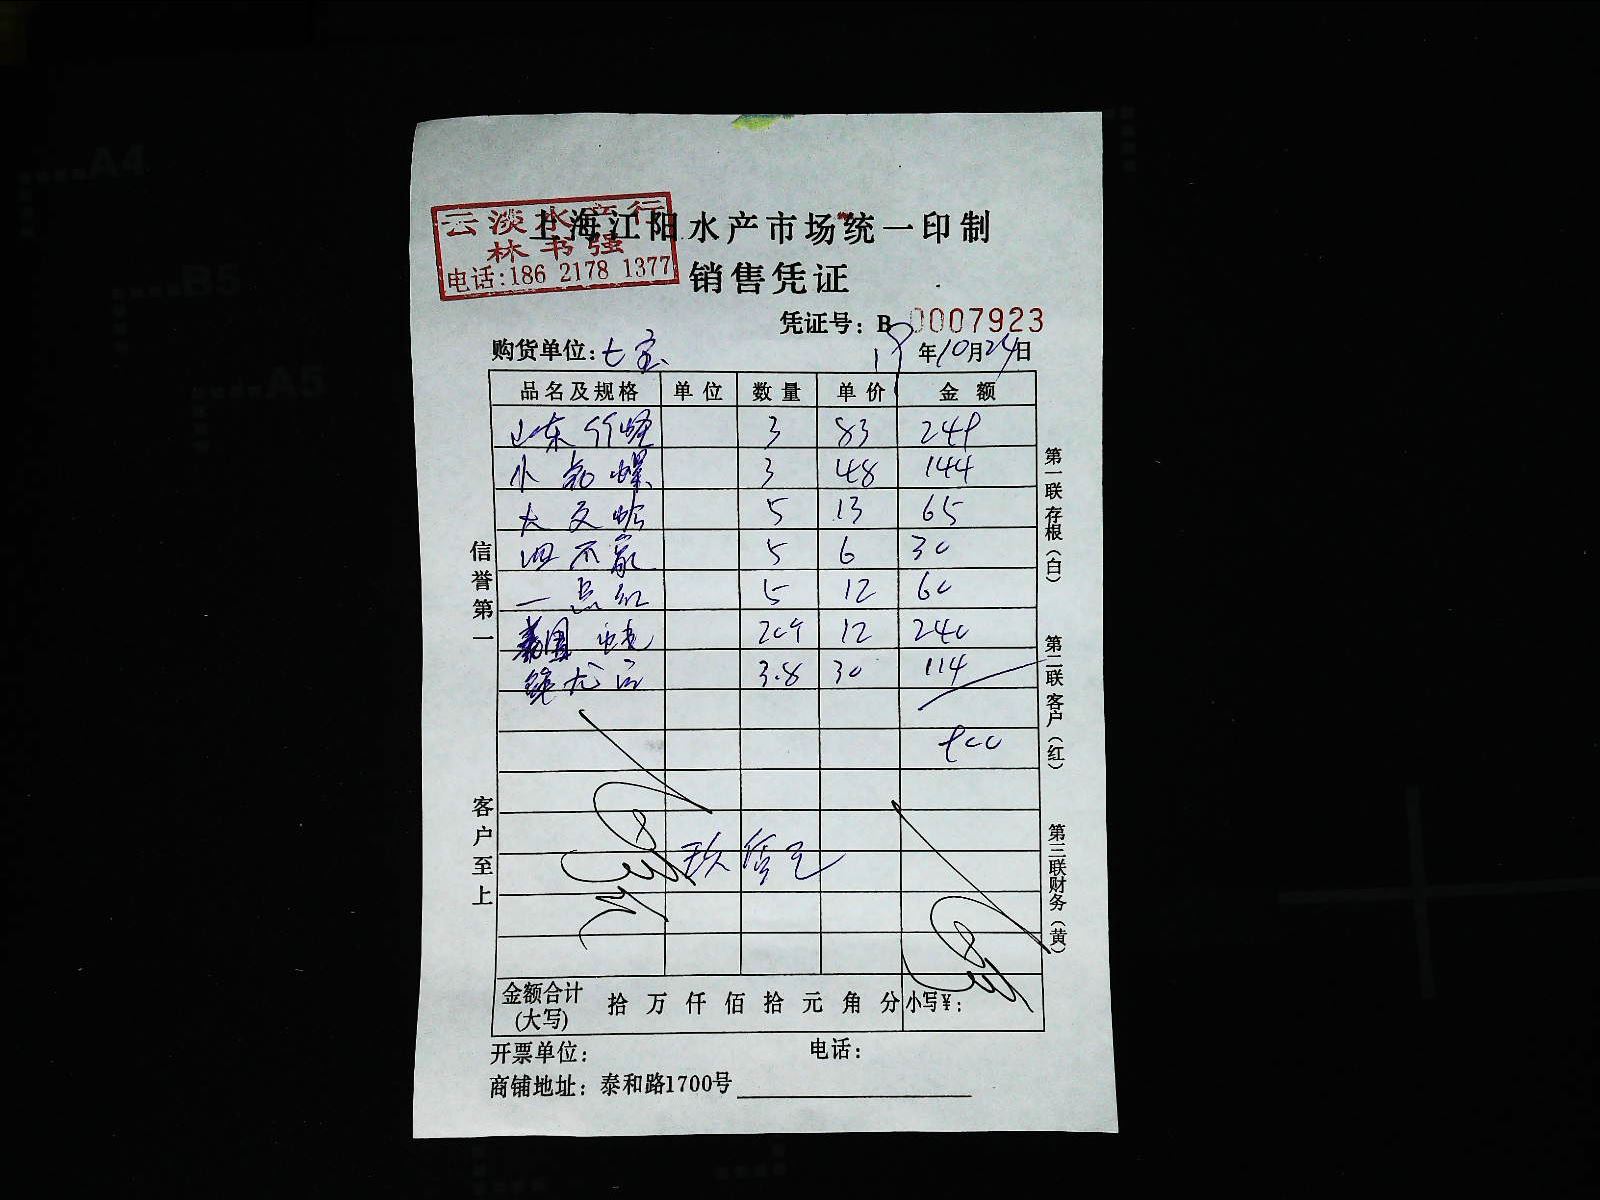 云淡水产行
林书强
电话:186 2178 1377
上海江阳水产市场统一印制
销售凭证
凭证号: B 0007923
购货单位: 七宝 19年10月24日
品名及规格 单位 数量 单价 金额
山东竹蛏 3 83 249
小花螺 3 48 144
大文蛤 5 13 65
泗不蠃 5 6 30
一点红 5 12 60
12 240
3.8 30 114
900
玖佰元
信誉第一
客户至上
第一联存根(白)
第二联客户(红)
第三联财务(黄)
金额合计(大写) 拾 万 仟 佰 拾 元 角 分 小写¥:
开票单位: 电话:
商铺地址: 泰和路1700号